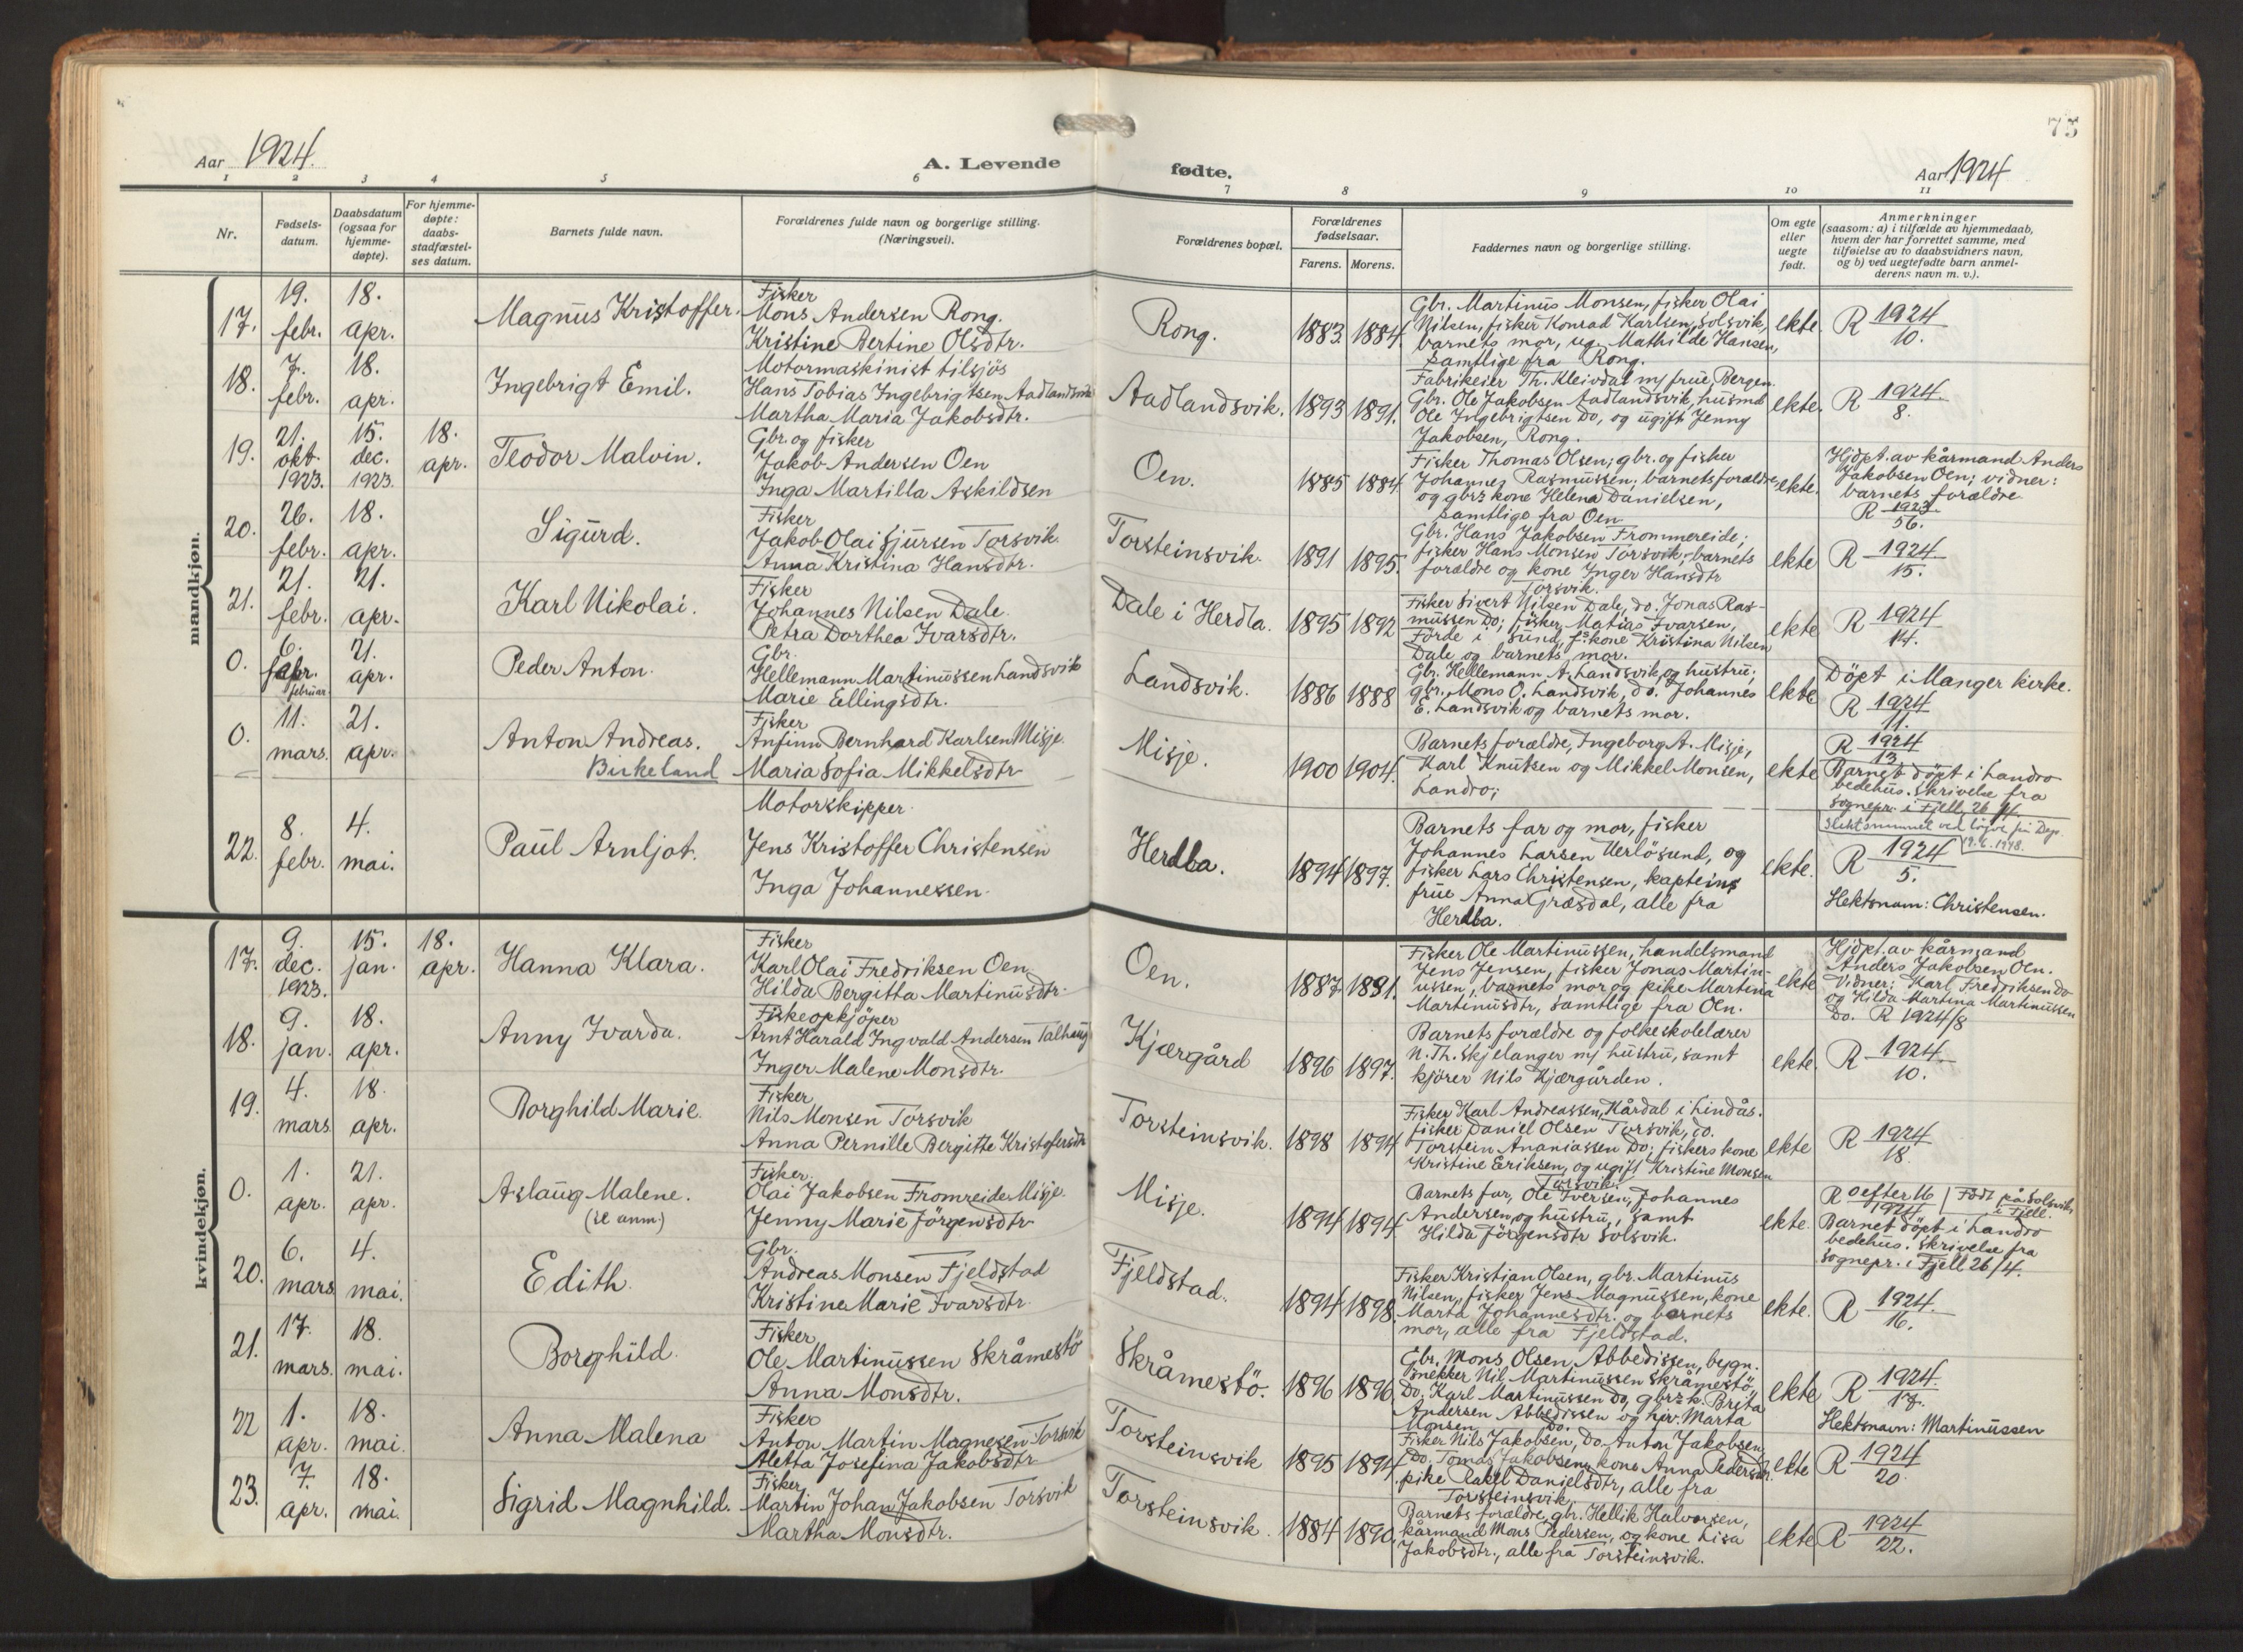 75
Aar 1924.
A. Levende
fødte.
Aar 1924
1 2 3 4 5 6 7 8 9 10 11
Nr.
Fødsels-
datum.
Daabsdatum
(ogsaa for
hjemme-
døpte).
For hjemme-
døpte:
daabs-
stadfæstel-
ses datum.
Barnets fulde navn.
Forældrenes fulde navn og borgerlige stilling.
(Næringsvei).
Forældrenes bopæl.
Forældrenes
fødselsaar.
Farens. Morens.
Faddernes navn og borgerlige stilling.
Om egte
eller
uegte
født.
Anmerkninger
(saasom: a) i tilfælde av hjemmedaab,
hvem der har forrettet samme, med
tilføielse av to daabsvidners navn,
og b) ved uegtefødte barn anmel-
derens navn m. v.).
mandkjøn.
17.
19.
febr.
18.
apr.
Magnus Kristoffer.
Fisker
Mons Andersen Rong.
Kristine Bertine Olsdtr.
Rong.
1883 1884.
Gbr. Martinus Monsen, fisker Olai
Nilsen, fisker Konrad Karlsen, Solsvik,
barnets mor, ug. Mathilde Hansen,
samtlige fra Rong.
ekte.
R 1924
10.
18.
7.
febr.
18.
apr.
Ingebrigt Emil.
Motormaskinist tilsjøs
Hans Tobias Ingebrigtsen Aadlandsvik
Martha Maria Jakobsdtr.
Aadlandsvik.
1893 1891.
Fabrikeier Th. Kleivdal m/ frue, Bergen.
Gbr. Ole Jakobsen Aadlandsvik, husmd
Ole Ingebrigtsen Do, og ugift Jenny
Jakobsen, Rong.
ekte.
R 1924
8.
19.
21.
okt.
1923.
15.
dec.
1923.
18.
apr.
Teodor Malvin.
Gbr. og fisker
Jakob Andersen Oen
Inga Martilla Askildsen
Oen.
1885 1884
Fisker Thomas Olsen; gbr. og fisker
Johannes Rasmussen; barnets forældre,
og gbrs kone Helena Danielsen,
samtlige fra Oen
ekte.
Hjdpt. av kårmand Anders
Jakobsen Oen; vidner:
barnets forældre.
R 1923
56.
20.
26.
febr.
18.
apr.
Sigurd.
Fisker
Jakob Olai Sjursen Torsvik.
Anna Kristina Hansdtr.
Torsteinsvik.
1891 1895.
Gbr. Hans Jakobsen Frommereide;
fisker Hans Monsen Torsvik; barnets
forældre og kone Inger Hansdtr
Torsvik.
ekte
R 1924
15.
21.
21.
febr.
21.
apr.
Karl Nikolai.
Fisker
Johannes Nilsen Dale.
Petra Dorthea Ivarsdtr.
Dale i Herdla.
1895 1892
Fisker Sivert Nilsen Dale, do. Jonas Ras-
mussen Do; fisker Matias Ivarsen,
Förde i Sund, fs. kone Kristina Nilsen
Dale og barnets mor.
ekte
R 1924
14.
0.
6.
apr.
februar
21.
apr.
Peder Anton.
Gbr.
Hellemann Martinussen Landsvik
Marie Ellingsdtr.
Landsvik.
1886 1888
Gbr. Hellemann A. Landsvik og hustru;
gbr. Mons O. Landsvik, do. Johannes
E. Landsvik og barnets mor.
ekte
Döpt i Manger kirke.
R 1924
11.
0.
11.
mars.
21.
apr.
Anton Andreas.
Birkeland
Fisker
Anfinn Bernhard Karlsen Misje.
Maria Sofia Mikkelsdtr
Misje.
1900 1904.
Barnets forældre, Ingeborg A. Misje,
Karl Knutsen og Mikkel Monsen,
Landro;
ekte
R 1924
13
Barnet döpt i Landro
bedehus. Skrivelse fra
sognepr. i Fjell, 26/4.
19.6.1948.
22.
8.
febr.
4.
mai.
Paul Arnljot.
Motorskipper.
Jens Kristoffer Christensen
Inga Johannessen.
Herdla.
1894 1897.
Barnets far og mor, fisker
Johannes Larsen Uerlösund, og
fisker Lars Christensen, kapteins
frue Anna Græsdal, alle fra
Herdla.
ekte.
R 1924
5.
Slektsnam: Christensen.
kvindekjøn.
17.
9.
dec.
1923.
15.
jan.
18.
apr.
Hanna Klara.
Fisker
Karl Olai Fredriksen Oen
Hilda Bergitta Martinusdtr.
Oen.
1887 1891.
Fisker Ole Martinussen, handelsmand
Jens Jensen, fisker Jonas Martin-
ussen, barnets mor og pike Martina
Martinusdtr, samtlige fra Oen.
ekte
Hjdpt. av kårmand
Anders Jakobsen Oen.
Vidner: Karl Fredriksen do
og Hilda Martina Martinussen
Do. R 1924/8
18.
9.
jan.
18.
apr.
Anny Ivarda.
Fiskeopkjöper
Arnt Harald Ingvald Andersen Talhaug
Inger Malene Monsdtr.
Kjærgård
1896 1897.
Barnets forældre og folkeskolelærer
N. Th. Skjelanger m/ hustru, samt
kjörer Nils Kjærgården.
ekte.
R 1924
10.
19.
4.
mars
18.
apr.
Borghild Marie.
Fisker
Nils Monsen Torsvik
Anna Pernille Bergitte Kristofersdtr
Torsteinsvik.
1898 1894
Fisker Karl Andreassen, Kårdal i Lindås.
fisker Daniel Olsen Torsvik, do.
Torstein Ananiassen Do; fiskers kone
Kristine Eriksen, og ugift Kristine Monsen
Torsvik.
ekte
R 1924
18.
0.
1.
apr.
21.
apr.
Aslaug Malene.
(se anm.)
Fisker.
Olai Jakobsen Fromreide Misje.
Jenny Marie Jörgensdtr
Misje.
1894 1894
Barnets far, Ole Iversen, Johannes
Andersen og hustru, samt
Hilda Jörgensdtr Solsvik.
ekte.
R 0 efter 16
1924
Födt på Solsvik
i Fjell.
Barnet döpt i Landro
bedehus. Skrivelse fra
sognepr. i Fjell 26/4.
20.
6.
mars
4.
mai.
Edith.
Gbr.
Andreas Monsen Fjeldstad
Kristina Marie Ivarsdtr.
Fjeldstad.
1894 1898.
Fisker Kristian Olsen, gbr. Martinus
Nilsen, fisker Jens Magnussen, kone
Marta Johannesdtr. og barnets
mor, alle fra Fjeldstad.
ekte.
R 1924.
16.
21.
17.
mars.
18.
mai.
Borghild.
Fisker
Ole Martinussen Skråmestö
Anna Monsdtr.
Skråmestö.
1896 1896
Gbr. Mons Olsen Abbedissen, bygn.
snekker Nil. Martinussen Skråmestö
Do. Karl Martinussen Do, gbrs k. Brita
Andersen Abbedissen og Marta
Monsen Do.
ekte
R 1924.
17.
Slektsnavn: Martinussen
22
1.
apr.
18.
mai.
Anna Malena
Fisker
Anton Martin Magnesen Torsvik
Aletta Josefina Jakobsdtr
Torsteinsvik
1895 1894.
Fisker Nils Jakobsen, Do. Anton Jakobsen,
Do. Tomas Jakobsen, kone Anna Pedersdtr.
pike Rakel Danielsdtr, alle fra
Torsteinsvik.
ekte
R 1924
20.
23.
7.
apr.
18.
mai.
Sigrid Magnhild.
Fisker
Martin Johan Jakobsen Torsvik
Martha Monsdtr.
Torsteinsvik.
1884 1890.
Barnets forældre, gbr. Hellik Halvorsen,
kårmand Mons Pedersen, og kone Lisa
Jakobsdtr., alle fra Torsteinsvik.
ekte
R 1924
22.